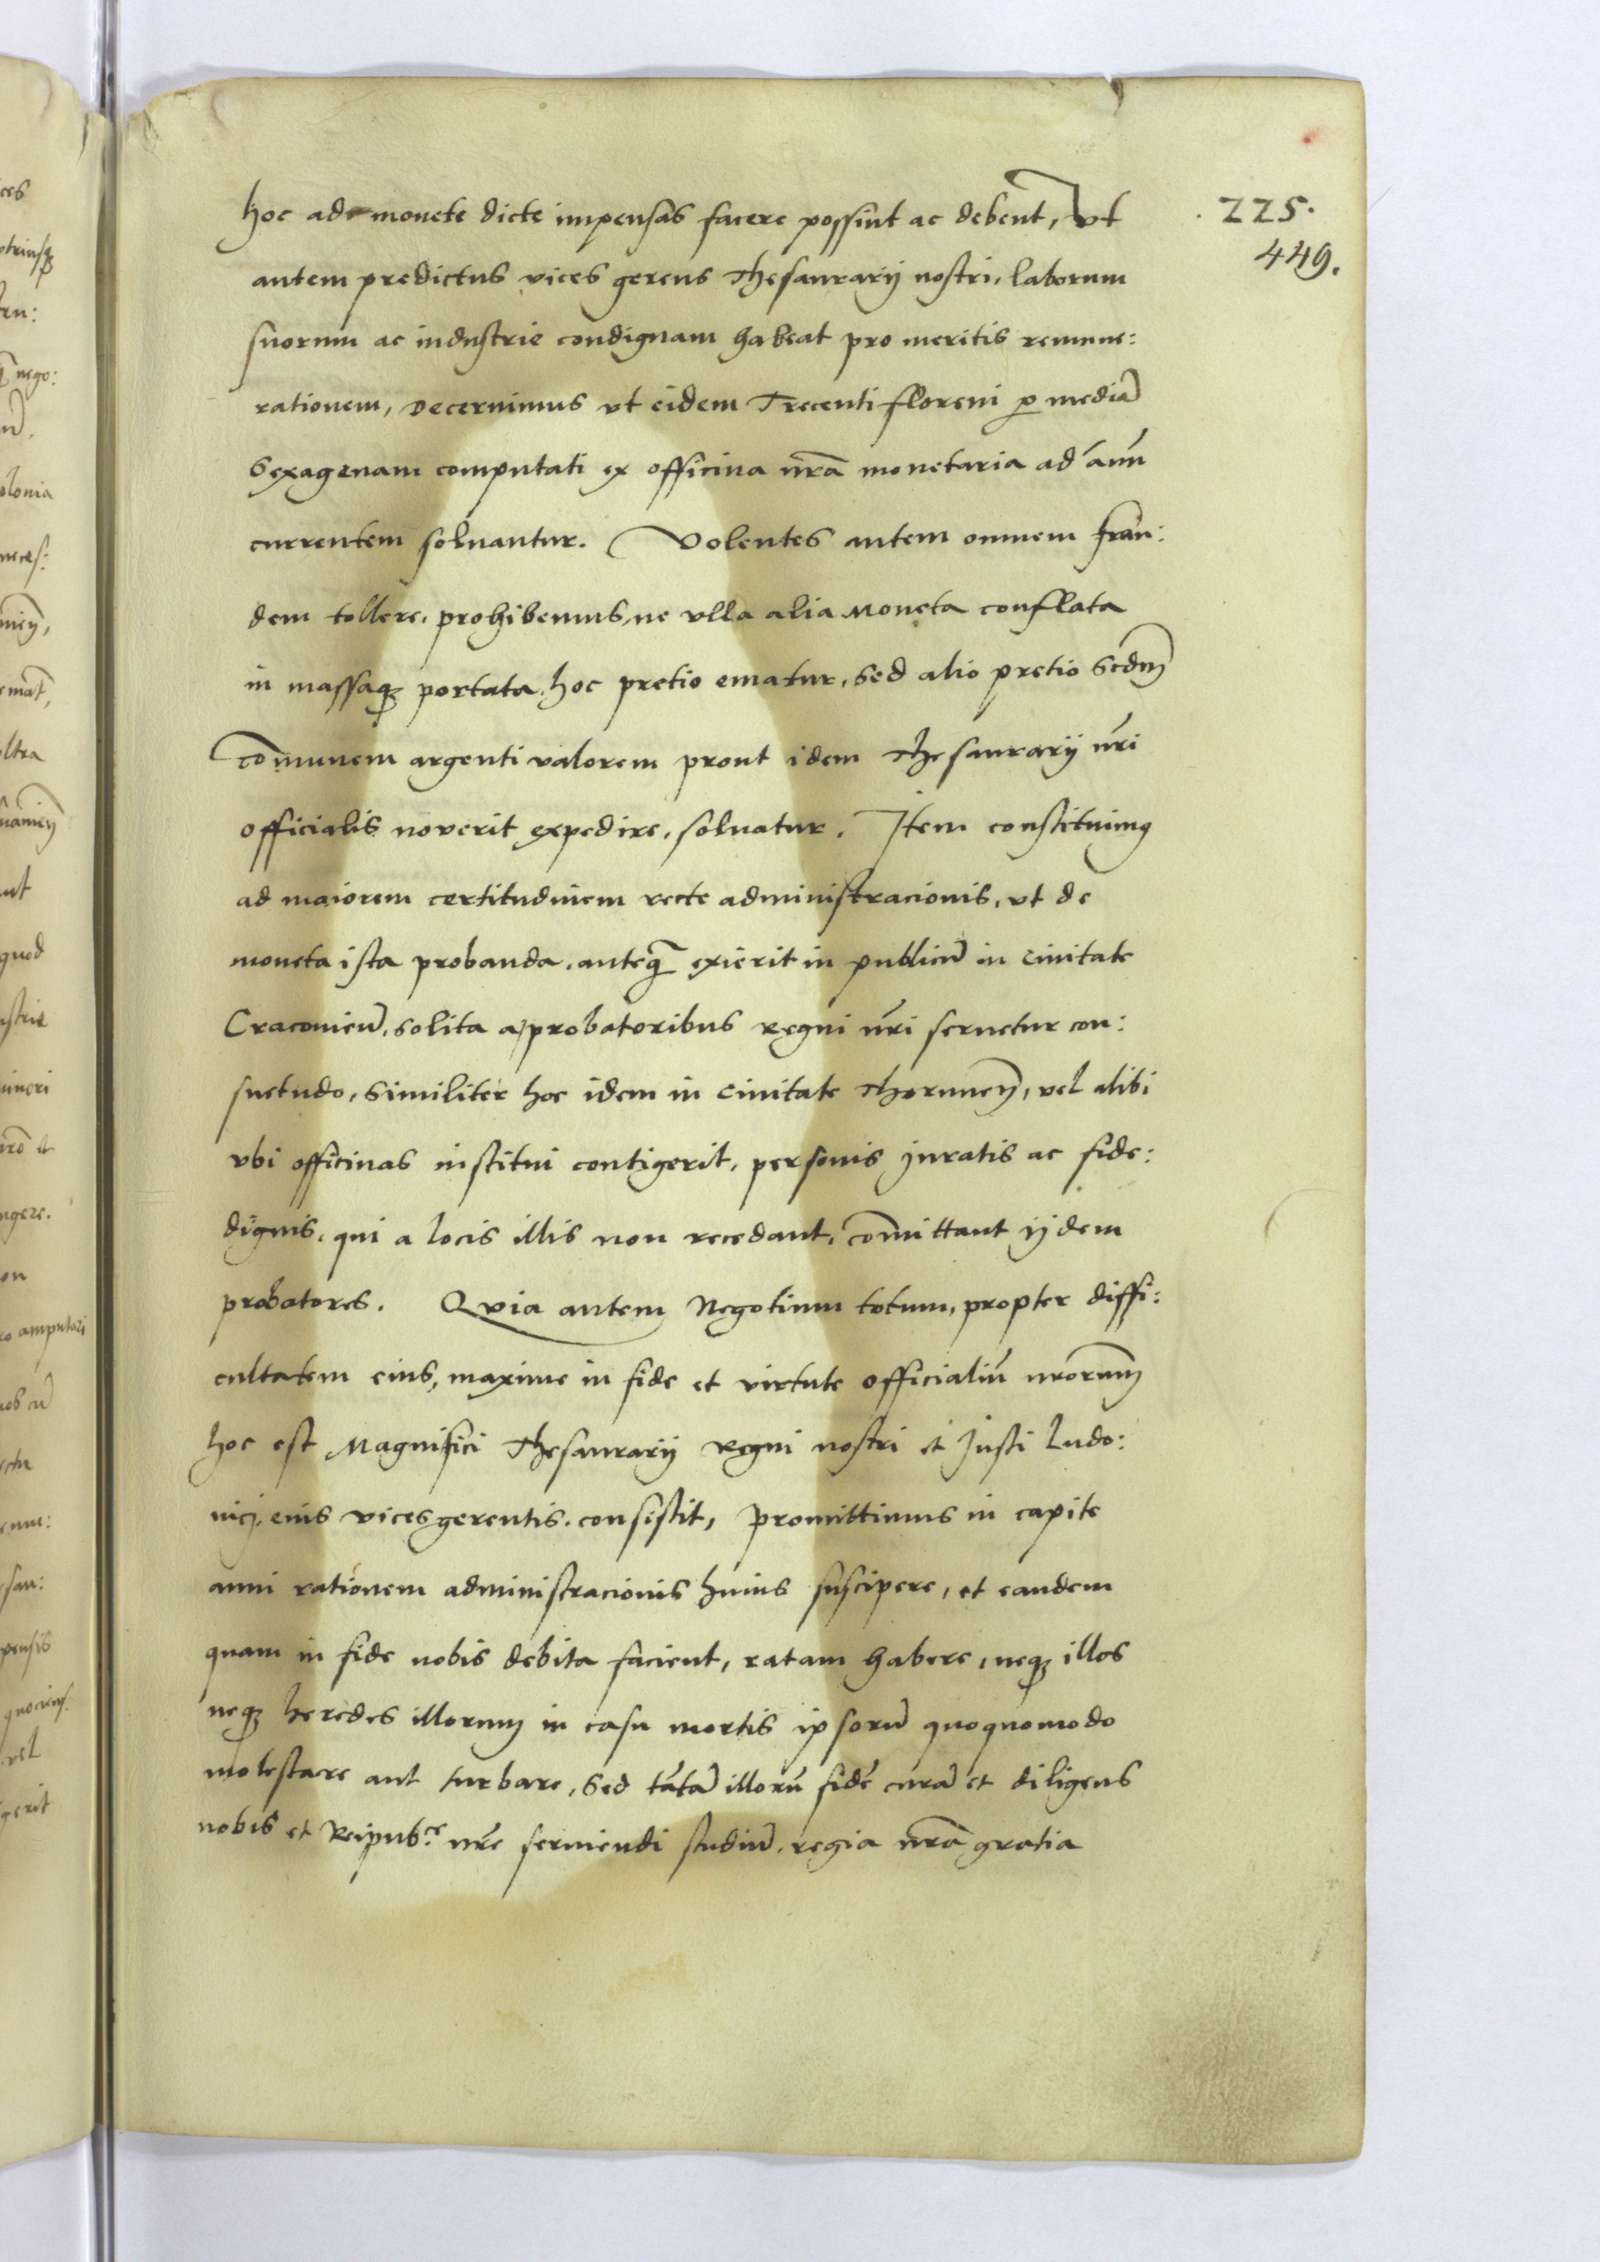 225.
449.
hoc ad monete dicte impensas facere possint ac debent, Vt
autem predictus vices gerens Thesaurarij nostri, laborum
suorum ac industrie condignam habeat pro meritis remune:
rationem, Decernimus vt eidem Trecenti floreni p mediā
Sexagenam computati ex officina nrā monetaria ad ānū
currentem soluantur. Volentes autem omnem frau:
dem tollere, prohibemus, ne vlla alia Moneta conflata
in massaq₃ portata, hoc pretio ematur, sed alio pretio Scdm̄
cōmunem argenti valorem prout idem Thesaurarij nr̄i
officialis noverit expedire, soluatur. Item constituimꝯ
ad maiorem certitudinem recte administracionis, vt de
moneta ista probanda, anteq̄ exierit in publicū in Ciuitate
Cracouieñ, solita a probatoribus Regni nr̄i seruetur con:
suetudo, similiter hoc idem in Ciuitate Thoruneñ, vel alibi
vbi officinas institui contigerit, personis juratis ac fide:
dignis, qui a locis illis non recedant, cōmittant ijdem
probatores. Qvia autem Negotium totum, propter diffi:
cultatem eius, maxime in fide et virtute officialiū nrōrum
hoc est Magnifici Thesaurarij Regni nostri et Justi Ludo:
uicj, eius vicesgerentis, consistit, Promittimus in capite
anni rationem administracionis huius suscipere, et eandem
quam in fide nobis debita facient, ratam habere, neq₃ illos
neq₃ heredes illorum in casu mortis ipsorū quoquomodo
molestare aut turbare, Sed tātā illorū fidē curā et diligens
nobis et Reipub.ce nrē seruiendi studiū, regia nrā gratia